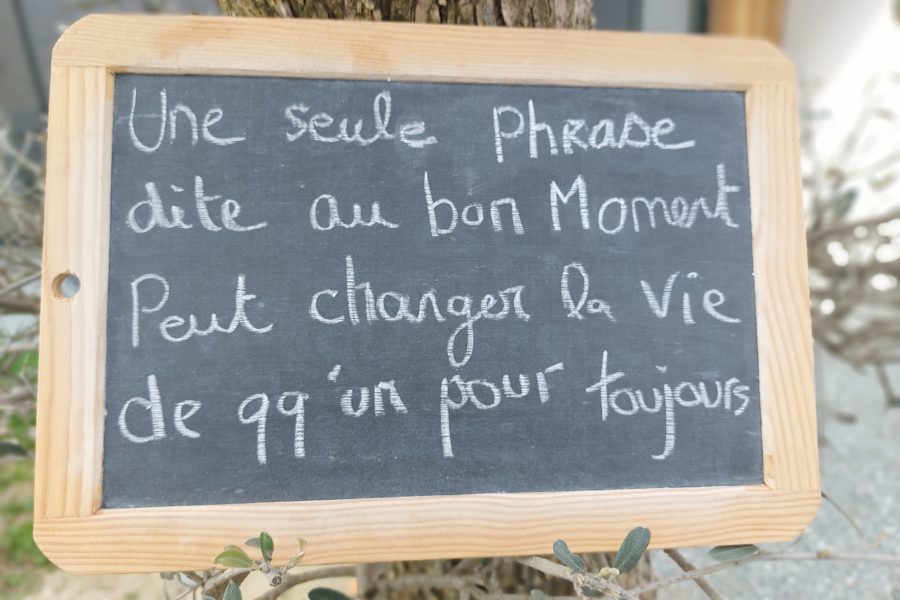 Une seule phrase
dite au bon Moment
Peut changer la vie
de qq'un pour toujours